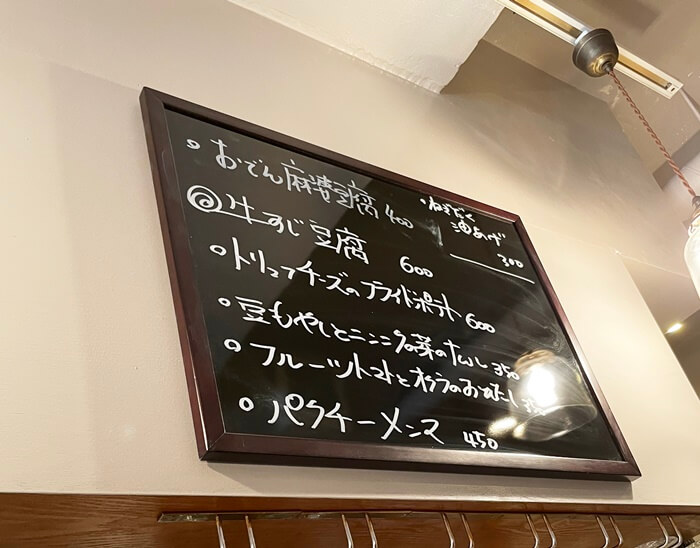 おでん麻婆豆腐 400
牛すじ豆腐 600
トリュフチーズのフライドポテト 600
豆もやしとニンニクの菜のナムル 350
フルーツトマトとオクラのおひたし
パクチーメンマ 450
ねぎだく
油あげ
300